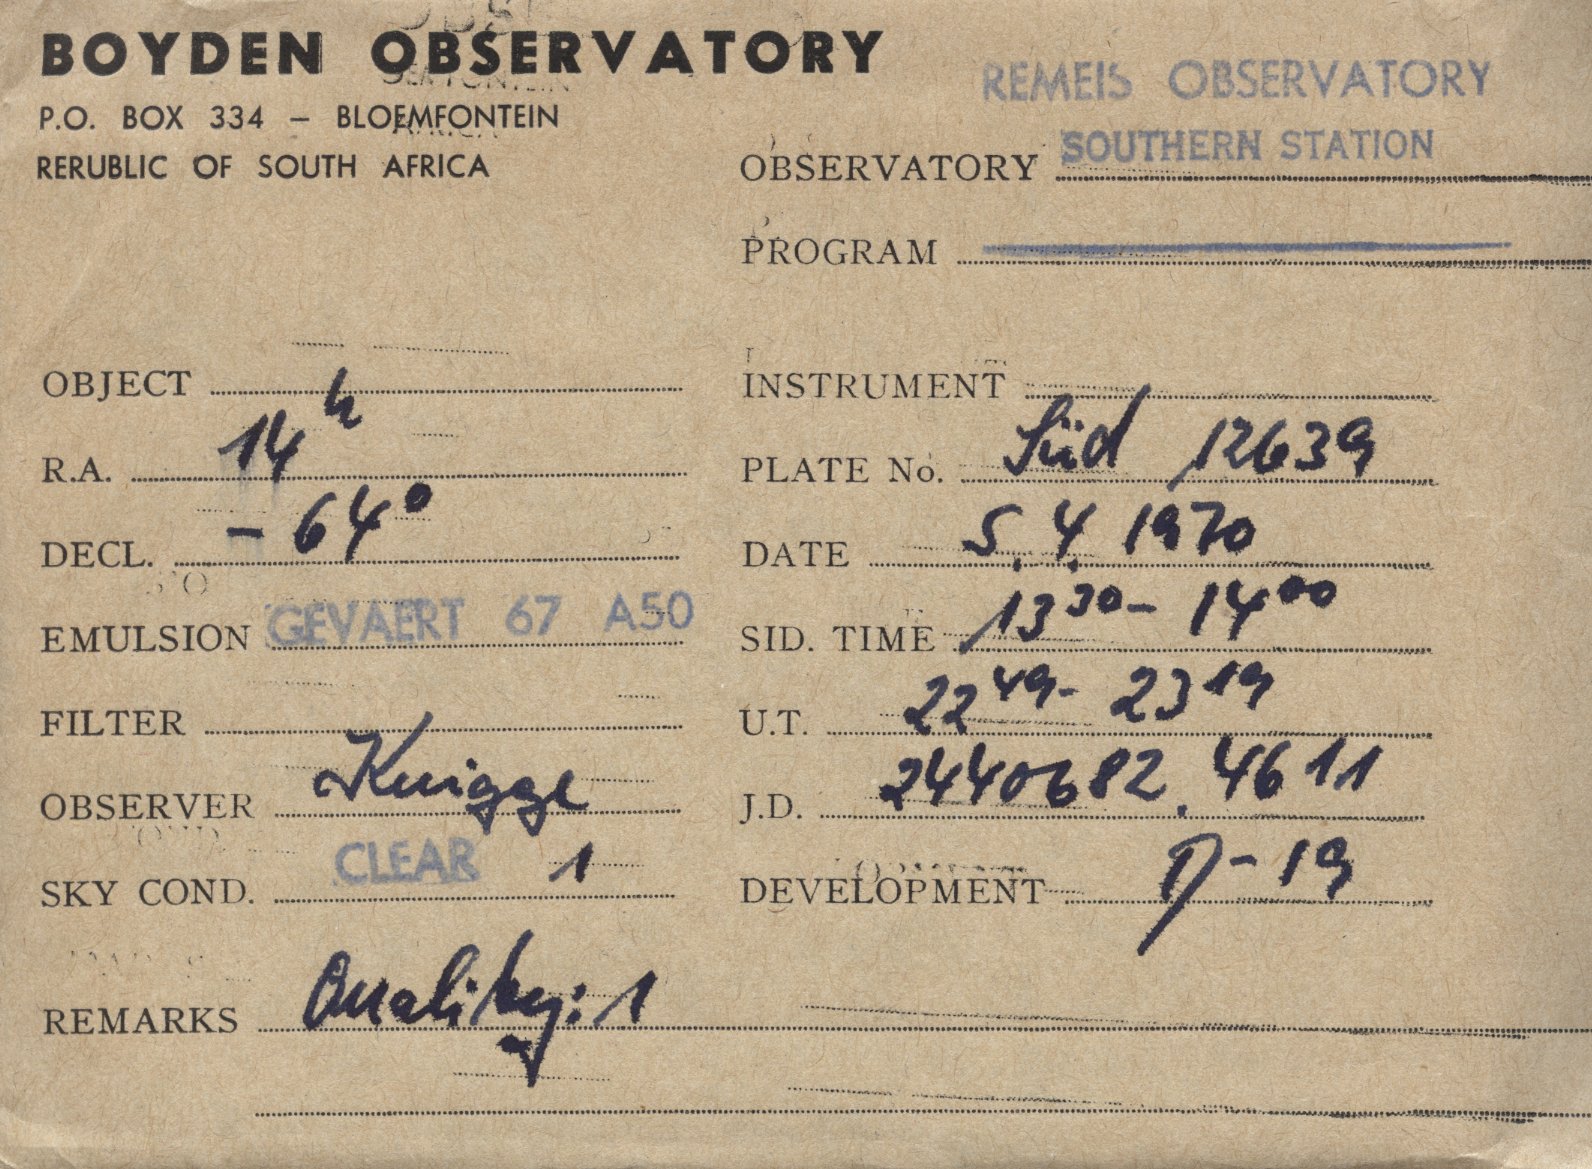 BOYDEN OBSERVATORY
P.O. BOX 334 – BLOEMFONTEIN
RERUBLIC OF SOUTH AFRICA
REMEIS OBSERVATORY
OBSERVATORY SOUTHERN STATION
PROGRAM
OBJECT
R.A. 14h
DECL. – 64°
EMULSION GEVAERT 67 A50
FILTER
OBSERVER Knigge
SKY COND. CLEAR 1
INSTRUMENT
PLATE No. Süd 12639
DATE 5.4.1970
SID. TIME 13 30 – 14 00
U.T. 22 49 – 23 19
J.D. 2440682.4611
DEVELOPMENT D-19
REMARKS Quality: 1